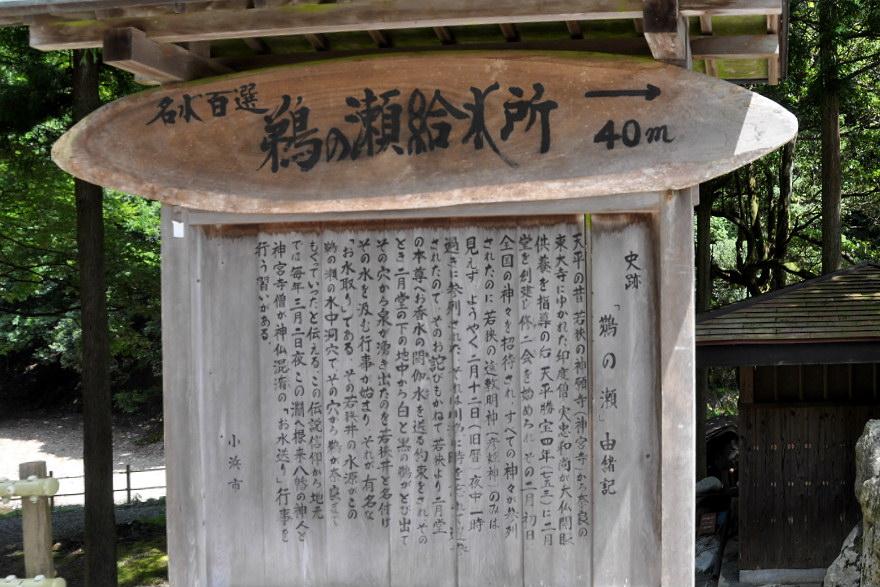 名水百選
鵜の瀬給水所
→
40m
史跡 「鵜の瀬」由緒記
天平の昔 若狭の神願寺(神宮寺)から奈良の
東大寺にゆかれた印度僧 実忠和尚が大仏開眼
供養を指導の后 天平勝宝四年(七五二)に二月
堂を創建し修二会を始められ その二月初日
全国の神々を招待され、すべての神々が参列
されたのに 若狭の遠敷明神(彦姫神)のみは
見えず ようやく二月十二日(旧暦)夜中一時
過ぎに参列された、それは川漁に時を
されたので、そのお詫びもかねて若狭より二月堂
の本尊へお香水の閼伽水を送る約束をされ その
とき二月堂の下の地中から白と黒の鵜がとび出て
その穴から泉が湧き出たのを若狭井と名付け
その水を汲む行事が始まり、それが有名な
「お水取り」である。その若狭井の水源がこの
鵜の瀬の水中洞穴で、その穴から鵜が奈良まで
もぐっていったと伝える。この伝説信仰から地元
では毎年三月二日夜 この淵へ根来八幡の神人と
神宮寺僧が神仏混淆の「お水送り」行事を
行う習いがある。
小浜市